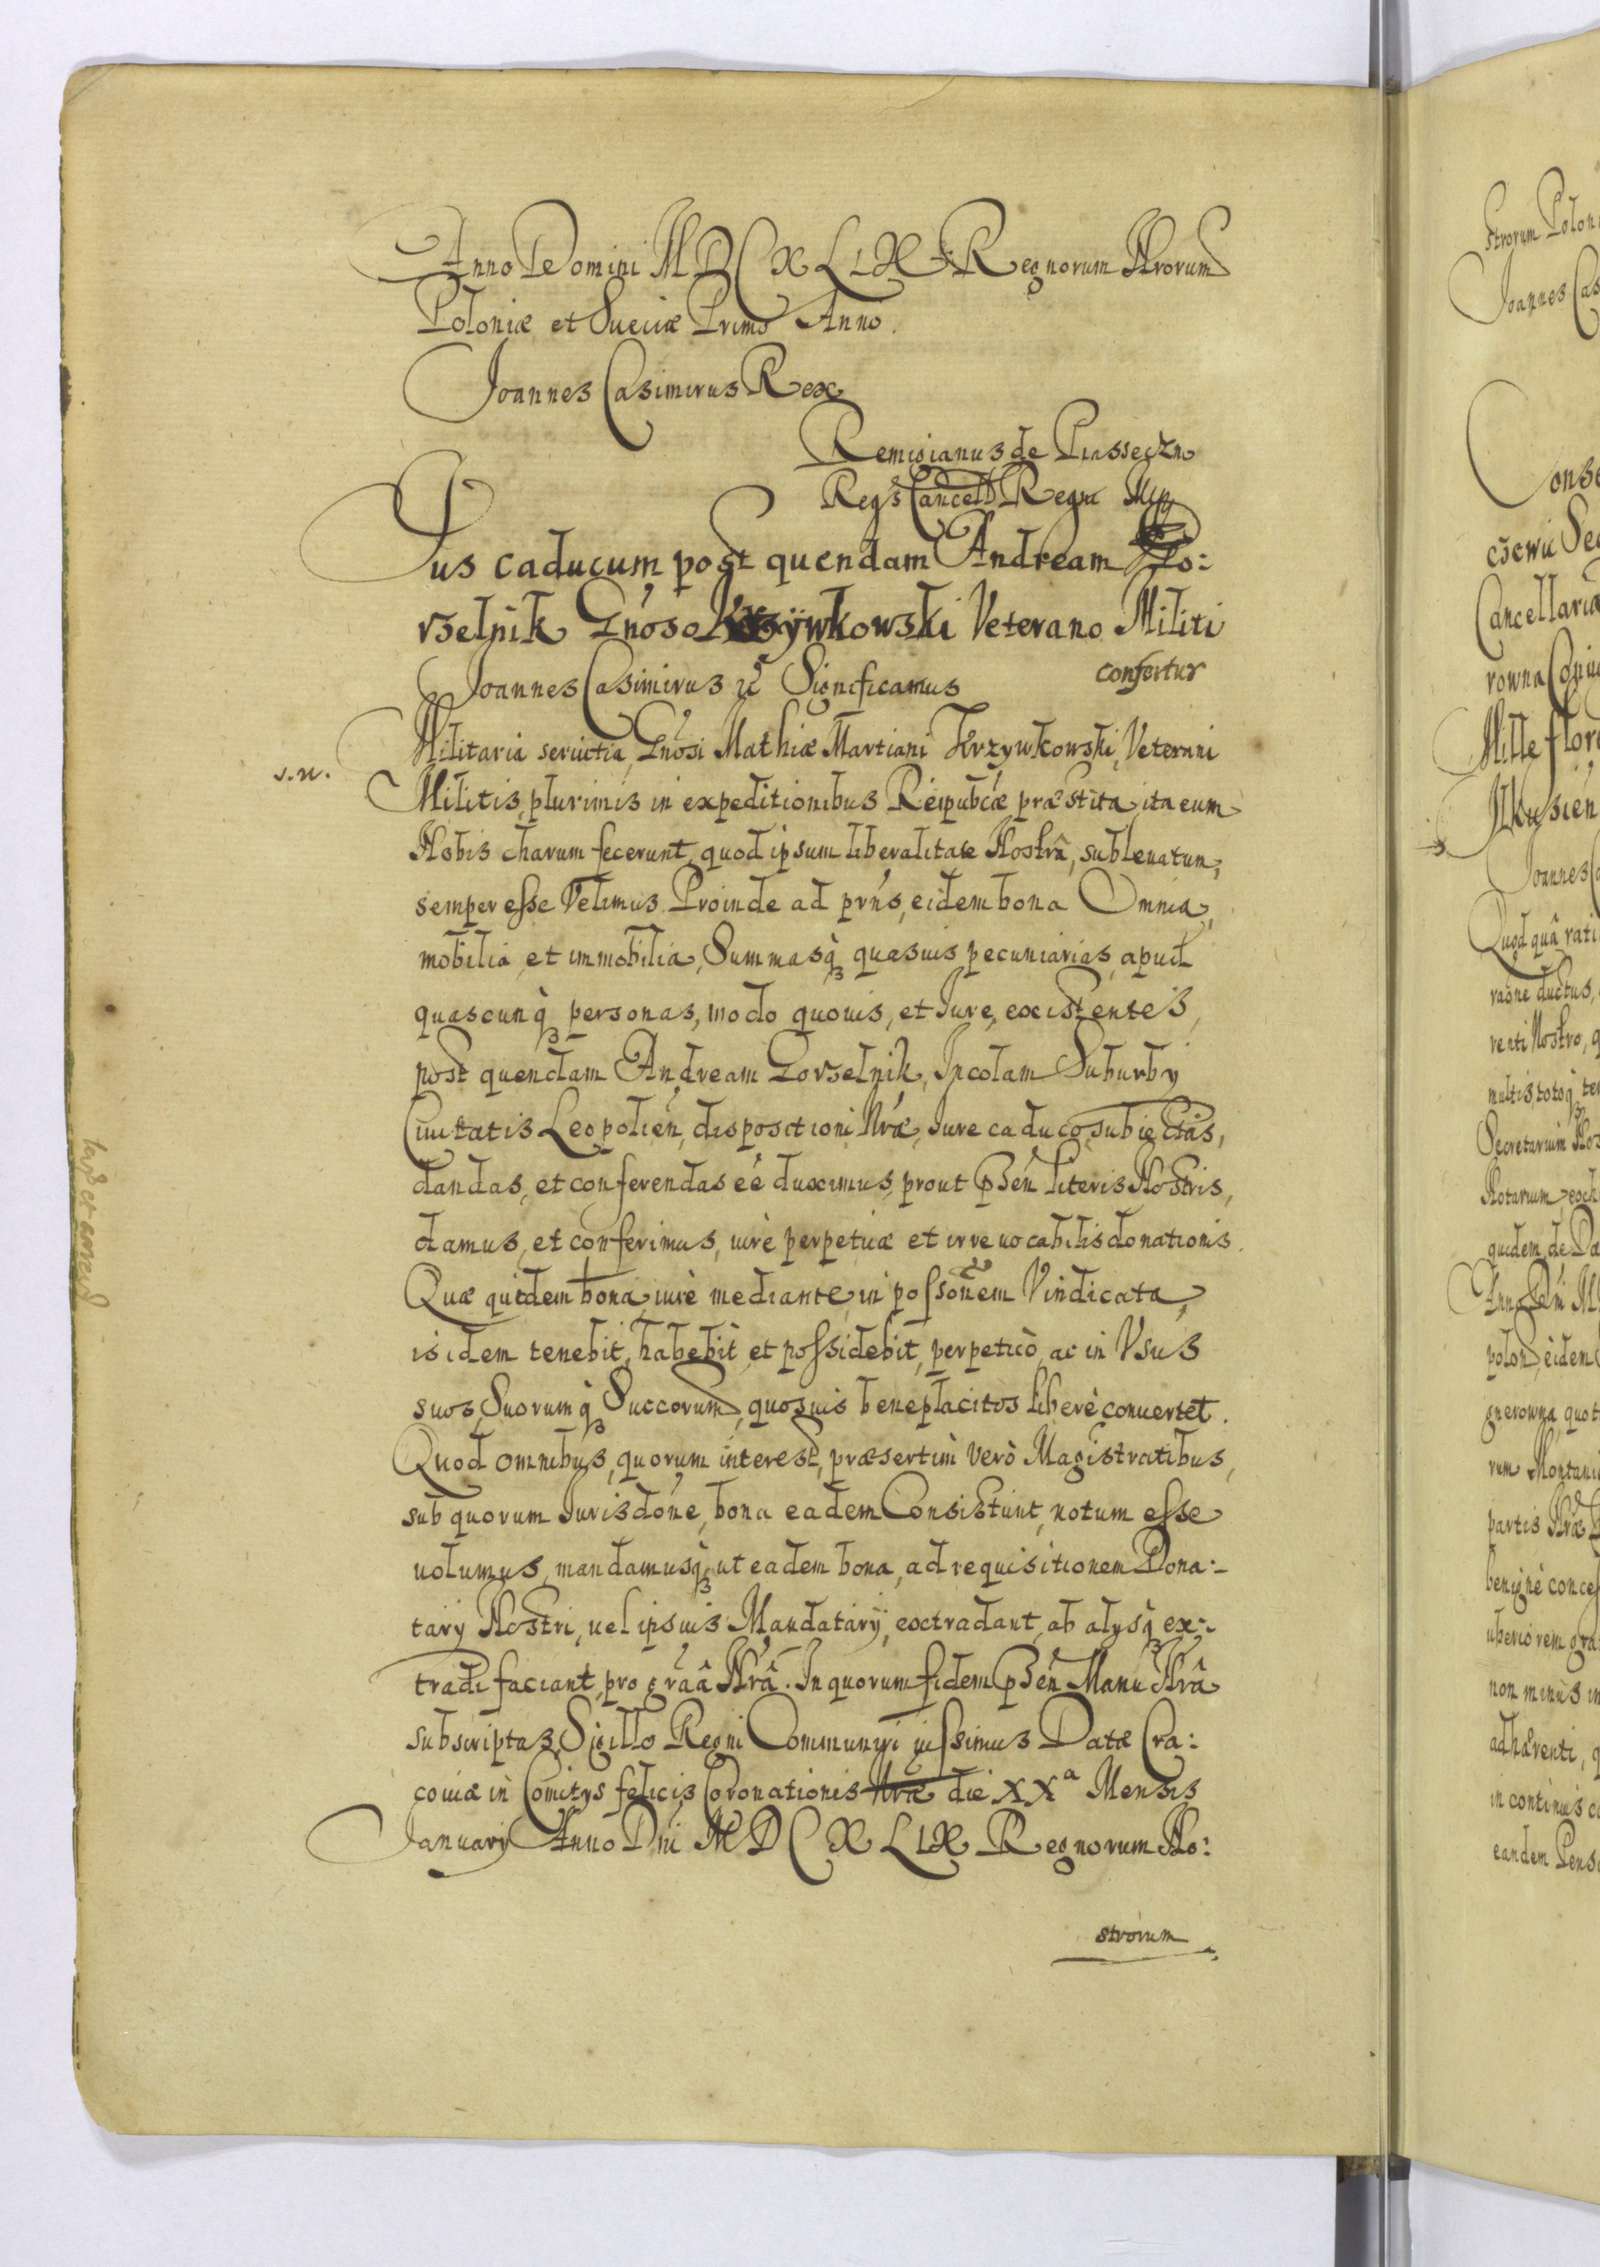 Anno Domini MDCXLIX Regnorum Nrorum
Poloniæ et Sueciæ Primo Anno.
Joannes Casimirus Rex
Remigianus de Piasseczno
Regs Cancell Regni Mpp
Jus caducum post quendam Andream Go:
rzelnik Gnoso Krzÿwkowski Veterano Militi
confertur
Joannes Casimirus Significamus
Militaria seruitia, Gnosi Mathiæ Martiani Krzywkowski, Veterani
s.n.
Militis, plurimis in expeditionibus Reipubcæ præstita, ita eum
Nobis charum fecerunt, quod ipsum liberalitate Nostrâ, subleuatum,
semper esse Velimus. Proinde ad prns, eidem bona Omnia,
mobilia, et immobilia, Summasq quasuis pecuniarias, apud
quascunq personas, modo quouis, et Jure, existentes,
post quendam Andream Gorzelnik, Incolam Suburby
Ciuitatis Leopolien, dispositioni Nræ, Jure caduco, subiectas,
dandas, et conferendas eé duximus, prout psen literis Nostris,
damus, et conferimus, iure perpetuæ et irreuocabilis donationis.
Quæ quidem bona, iure mediante, in possonem Vindicata,
is idem tenebit, habebit, et possidebit, perpetuò, ac in Vsus
suos, Suorumq Succorum, quosuis beneplacitos liberè conuertet.
Quod omnibus, quorum interest, præsertim verò Magistratibus,
sub quorum Jurisdone, bona eadem Consistunt, notum esse
uolumus, mandamusq, ut eadem bona, ad requisitionem Dona:
tary Nostri, uel ipsius Mandatarÿ, extradant, ab alysq ex:
tradi faciant, pro graâ Nrâ. In quorum fidem psen Manu Nrâ
subscriptas, Sigillo Regni Communiri iussimus Datæ Cra:
couiæ in Comitys felicis Coronationis Nræ die XXa Mensis
January Anno Dni MDCXLIX Regnorum No:
strorum